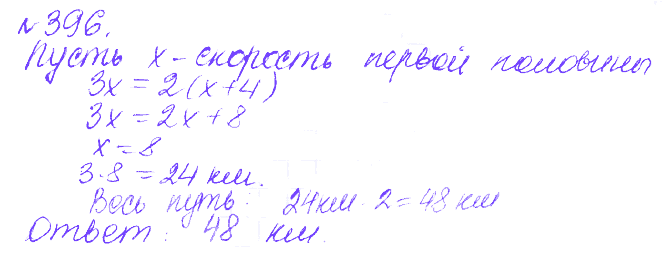 №396.
Пусть х - скорость первой половины
3х = 2(х+4)
3х = 2х + 8
х = 8
3·8 = 24 км.
Весь путь: 24км · 2 = 48 км
Ответ: 48 км.